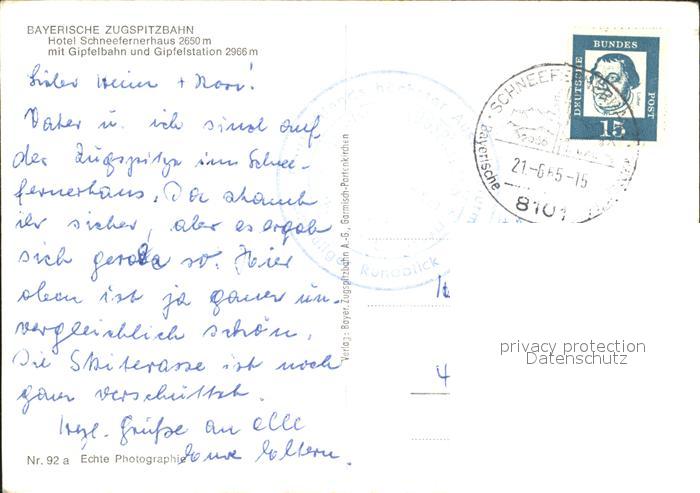 BAYERISCHE ZUGSPITZBAHN
Hotel Schneefernerhaus 2650 m
mit Gipfelbahn und Gipfelstation 2966 m
Lieber Heinr + Rosi!
Vater u. ich sind auf
der Zugspitze im Schnee-
fernerhaus. Da staunt
ihr sicher, aber es ergab
sich gerade so. Hier
oben ist ja ganz un-
vergleichlich schön.
Die Skiterasse ist noch
ganz verschüttet.
Herzl. Grüße an alle
Eure Eltern.
Nr. 92 a Echte Photographie
Verlag: Bayer. Zugspitzbahn A.-G., Garmisch-Partenkirchen
höchster
Rundblick
SCHNEEFE
Bayerische
21.-6.65.-15
8101
DEUTSCHE
BUNDES
POST
15
privacy protection
Datenschutz